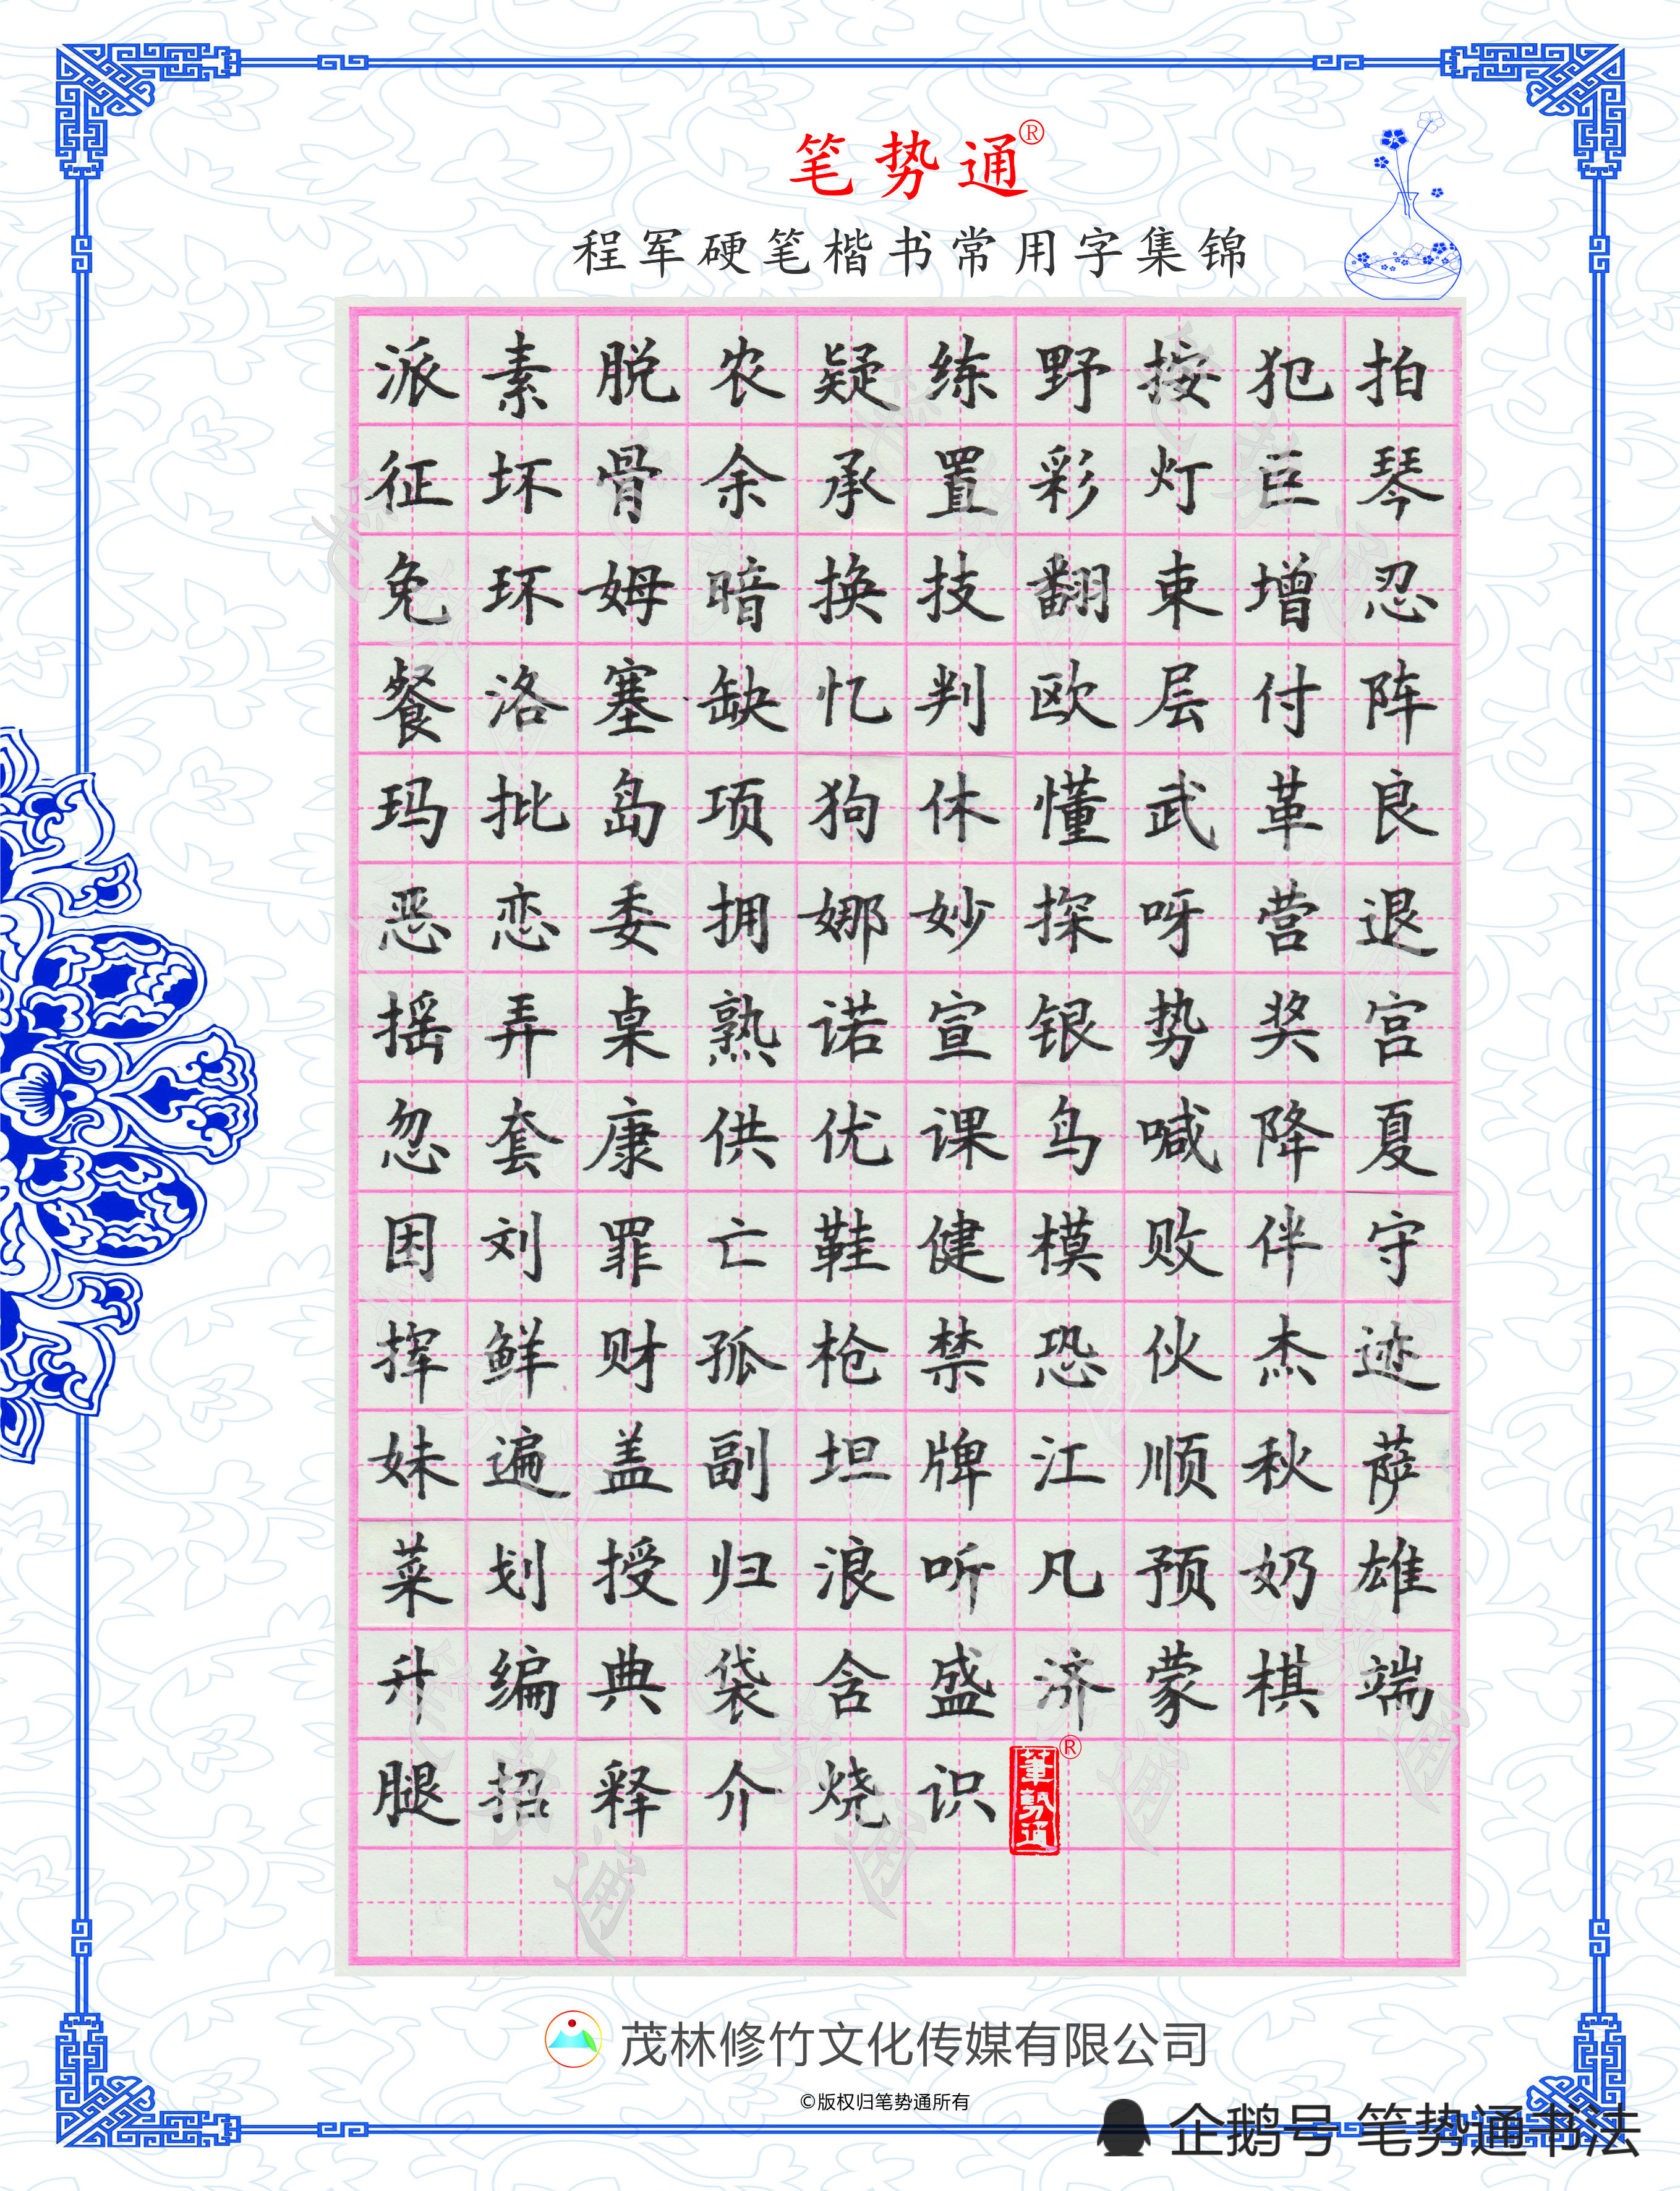 笔势通®
程军硬笔楷书常用字集锦
派素脱农疑练野按犯拍
征坏骨余承置彩灯巨琴
免环姆暗换技翻束增忍
餐洛塞缺忆判欧层付阵
玛批岛项狗休懂武革良
恶恋委拥娜妙探呀营退
摇弄桌熟诺宣银势奖宫
忽套康供优课鸟喊降夏
因刘罪亡鞋健模败伴守
挥鲜财孤枪禁恐伙杰迹
妹遍盖副坦牌江顺秋萨
菜划授归浪听凡预奶雄
升编典袋含盛济蒙棋端
腿招释介烧识
筆勢通®
茂林修竹文化传媒有限公司
©版权归笔势通所有
企鹅号 笔势通书法